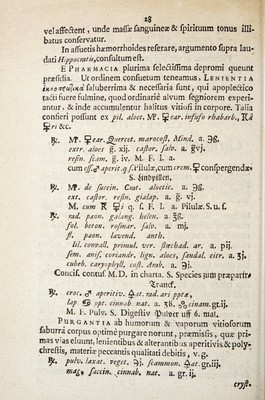 28
vel affectent, unde massæ sanguineæ & spirituum tonus illi-
batus conservatur.
In assuetis hæmorrhoides referare, argumento supra lau-
dati Hippocratis, consultum est.
E PHARMACIA plurima selectissima depromi queunt
præsidia. Ut ordinem consuetum teneamus, LENIENTIA
saluberrima & necessaria sunt, qui apoplectico
tacti fuere fulmine, quod ordinariè alvum segniorem experi-
antur, & inde accumulentur halitus vitiosi in corpore. Talia
confieri possunt ex pil. aloet. infuso rhabarb.,
ri &c.
Quercet. marocost. Mind. a.
extr. aloes g. xij. castor. salv. a. gvj.
resin. scam. g. iv. M. F. l. a.
cum q. s. Pilulæ, cum conspergendæ
S. Lindpillen.
de succin. Crat. aloetic. a.
ext. castor. resin. gialap. a. g. vj
M. cum q. s. F. a. Pilulæ. S. u. s.
rad. pæon. galang. helen. a. ʒß.
fol. beton. rosmar. salv. a. mj.
fl. pæon. lavend. anth.
lil. convall. primul. ver. stœchad. ar. a. pij.
sem. anis. coriandr. lign. aloes, santal. citr. a. ʒj.
cubeb. caryophyll. cost. Arab. a. ℈j.
Concis. contus M.D. in charta. S. Species zum
Tranck.
croc. aperitiv. rad. ari
lap. opt. cinnab nat. a. cinam. gt. ij.
M. F. Pulv. S. Digestiv Pulver uff 6. mal.
PURGANTIA ab humorum & vaporum vitiosorum
saburra corpus optimè purgare norunt, præmissis, quæ pri-
mas vias eluunt, lenientibus & alterantibus aperitivis & poly-
chrestis, materiæ peccantis qualitati debitis, v. g.
pulv. laxat. peger. scammon. gr. iij.
succin. cinnab. nat. a. gr. ij.
cryst.